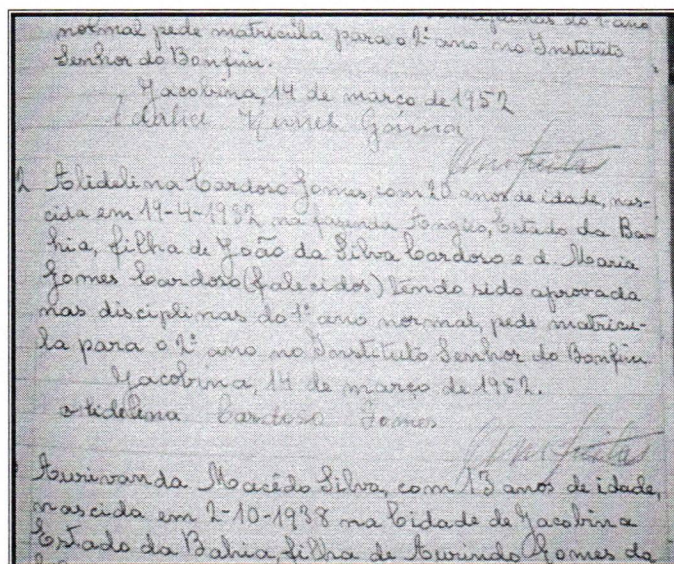 disciplinas do 1º ano
normal pede matrícula para o 2º ano no Instituto
Senhor do Bonfim.
Jacobina, 14 de março de 1952
2 Alidelina Cardoso Gomes, com 20 anos de idade, nas-
cida em 19-4-1932 na fazenda Angico, Estado da Ba-
hia, filha de João da Silva Cardoso e d. Maria
Gomes Cardoso (falecidos) tendo sido aprovada
nas disciplinas do 1º ano normal, pede matrícu-
la para o 2º ano no Instituto Senhor do Bonfim
Jacobina, 14 de março de 1952.
Alidelina Cardoso Gomes
Aurivanda Macêdo Silva, com 13 anos de idade,
nascida em 2-10-1938 na Cidade de Jacobina
Estado da Bahia, filha de Aurindo Gomes da